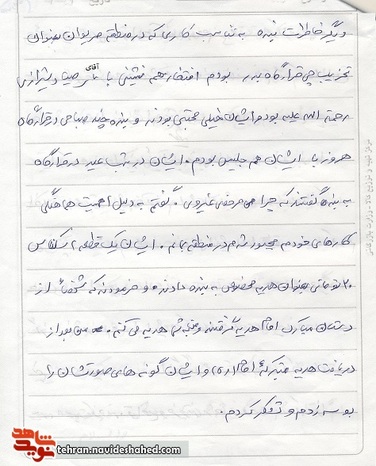 دیگر خاطرات بنده به تناسب کاری که در منطقه مریوان بعنوان
تخریب چی قرارگاه بدر بودم افتخار هم نشینی با آقای صیاد شیرازی
رحمة الله علیه بودم ایشان خیلی مجتبی بودند و بنده چند صباحی در قرارگاه
هر روز با ایشان هم جلیس بودم. ایشان در شب عید در قرارگاه
به بنده گفتند که چرا مرخصی نمیروی. گفتم به دلیل اهمیت هماهنگی
کارهای خودم مجبور شدم در منطقه بمانم. ایشان یک قطعه اسکناس
۲۰ تومانی بعنوان هدیه مخصوص به بنده دادند و فرمودند که شخصاً از
دستان مبارک امام هدیه گرفتند و به شما هدیه می کنم. من بعد از
دریافت هدیه متبرکۀ امام (ره) و ایشان گونه های صورتشان را
بوسه زدم و تشکر کردم.
نوید شاهد
tehran.navideshahed.com